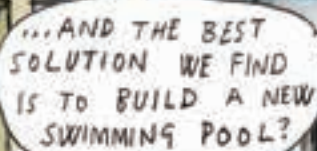 ...AND THE BEST
SOLUTION WE FIND
IS TO BUILD A NEW
SWIMMING POOL?